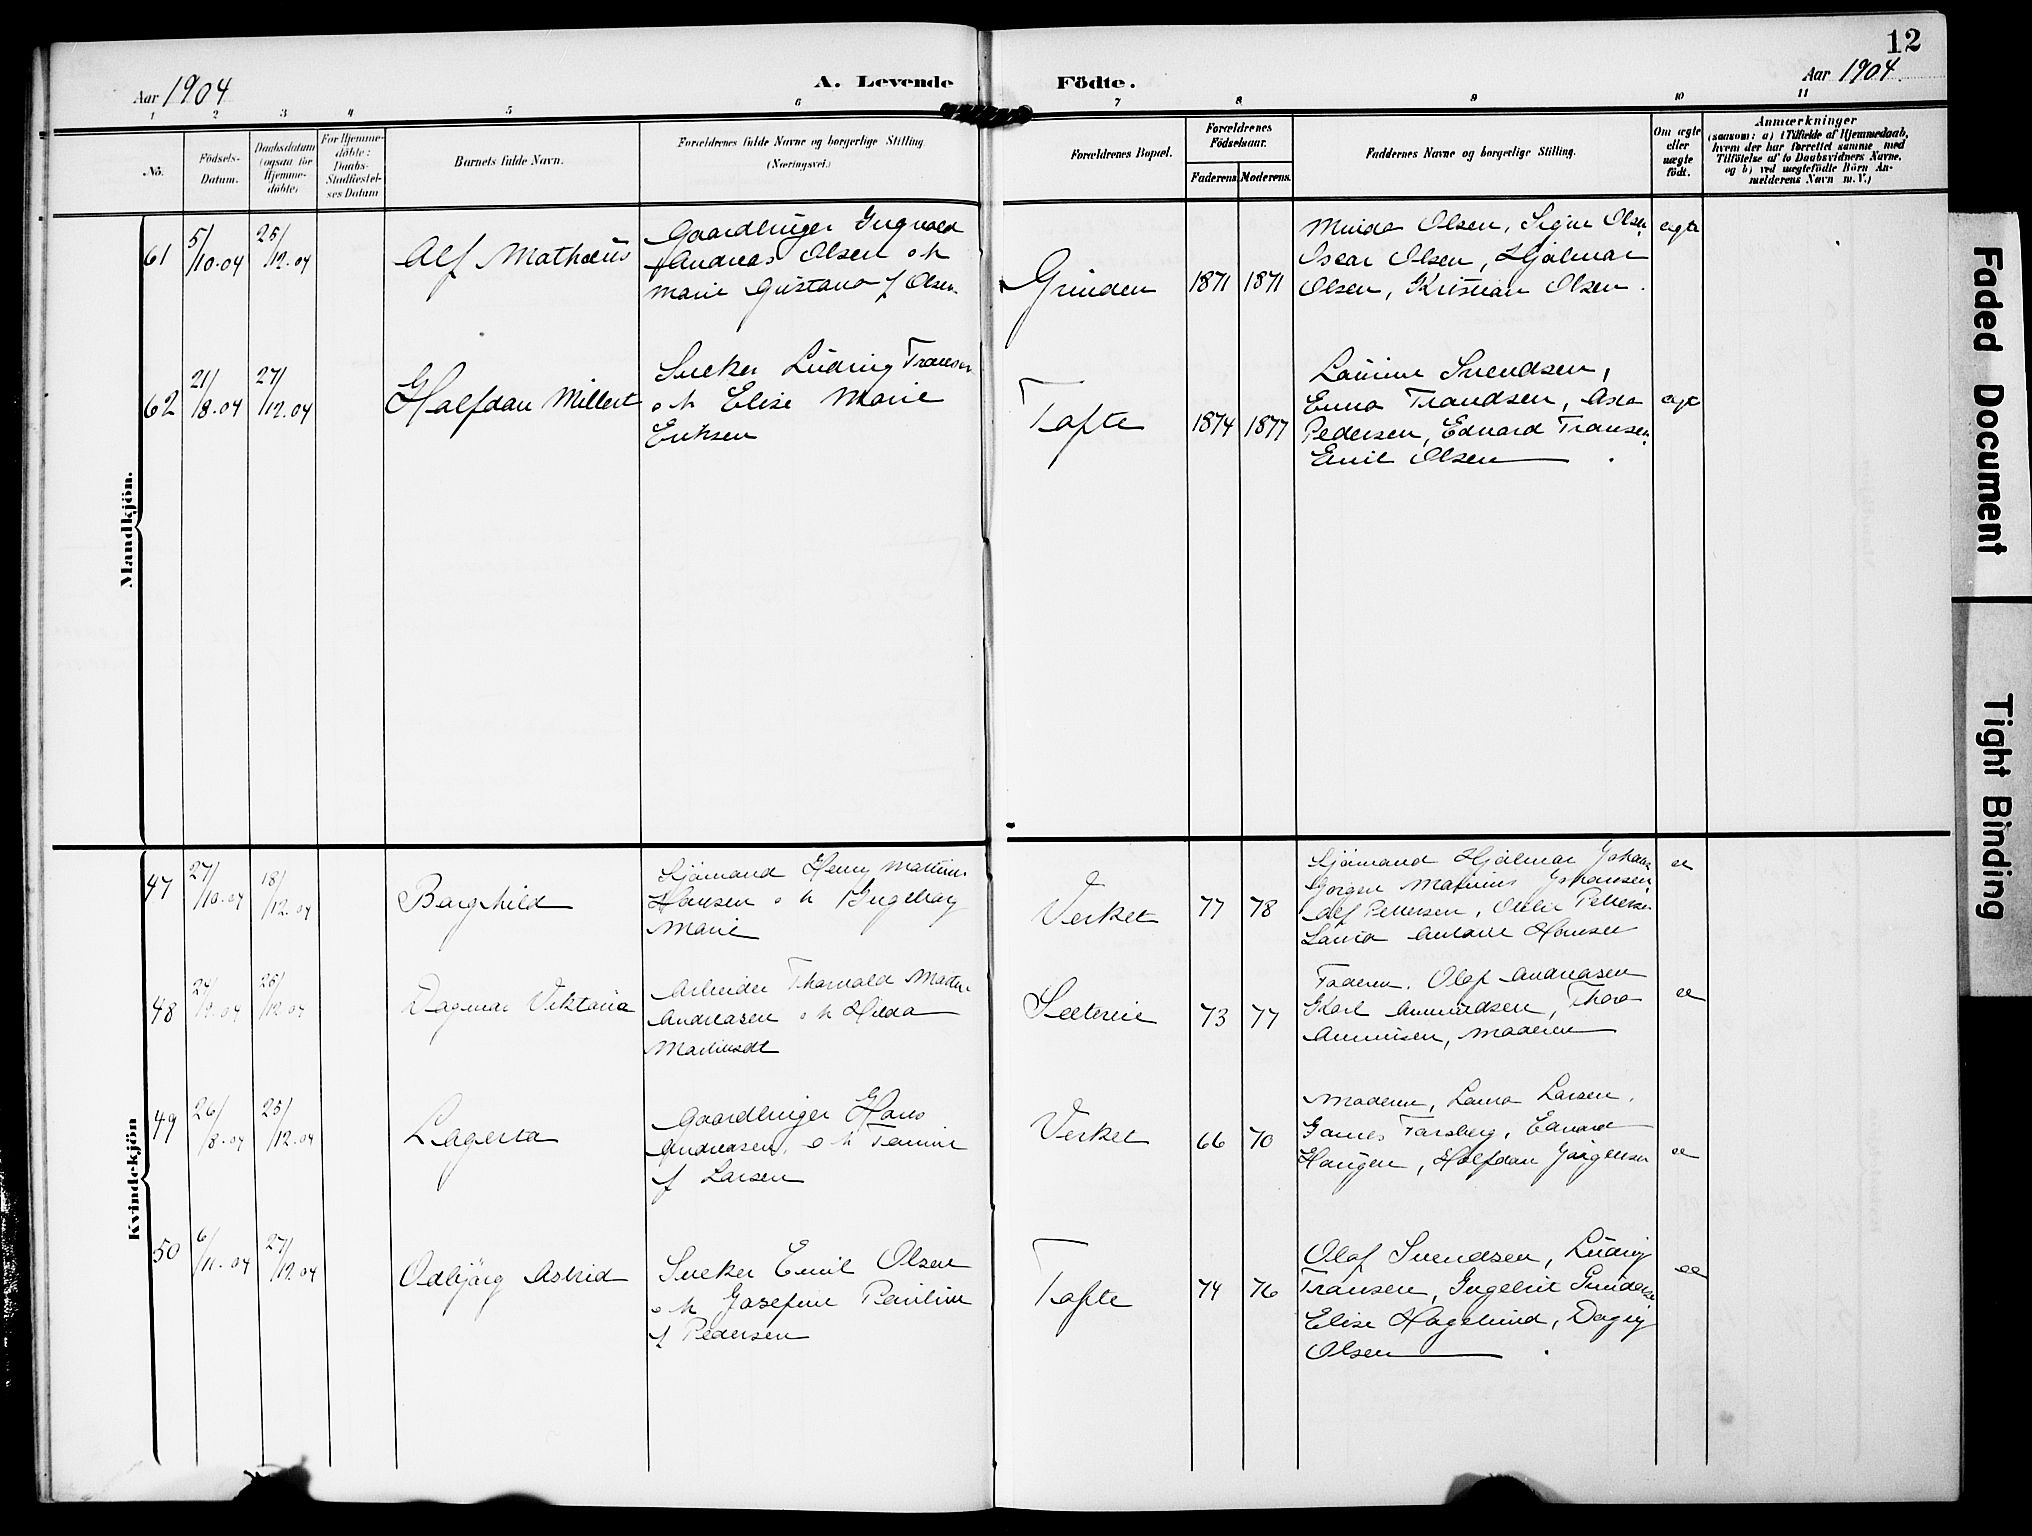 12
Aar 1904
A. Levende Födte.
Aar 1904
1 2 3 4 5 6 7 8 9 10 11
No.
Födsels-
Datum.
Daabsdatum
(ogsaa for
Hjemme-
döbte)
For Hjemme-
döbte:
Daabs-
Stadfæstel-
ses Datum
Barnets fulde Navn.
Forældrenes fulde Navne og borgerlige Stilling.
(Næringsvei.)
Forældrenes Bopæl.
Forældrenes
Födselsaar.
Faderens Moderens.
Faddernes Navne og borgerlige Stilling.
Om ægte
eller
uægte
födt.
Anmærkninger
(saasom: a) i Tilfælde af Hjemmedaab,
hvem der har forrettet samme med
Tilföielse af to Daabsvidners Navne,
og b) ved uægtefödte Börn An-
melderens Navn m. V.)
Mandkjön.
61
5/10.04
25/12.04
Alf Mathæus
Gaardbruger Ingvald
Andreas Olsen o h
Marie Gustava f Olsen
Grinden
1871 1871
Minda Olsen, Signe Olsen
Oscar Olsen, Hjalmar
Olsen, Kristian Olsen.
ægte
62
21/8.04
27/12.04
Halfdan Millert
Snekker Ludvig Transen
o h Elise Marie
Eriksen
Tofte
1874 1877
Laurine Svendsen,
Emma Trandsen, Asta
Pedersen, Edvard Transen
Emil Olsen
ægte
Kvindekjön
47
27/10.04
18/12.04
Borghild
Sjömand Henry Martin
Hansen o h Ingeborg
Marie
Verket
77 78
Sjömand Hjalmar Johan
Jörgen Mathias Johansen
Alf Pettersen, Otilie Pettersen
Laura Antonie Hansen
æ
48
25/12 04
Dagmar Viktoria
Arbeider Thorvald Martin
Andreasen o h Hilda
Martinsdt
Sætereie
73 77
Faderen, Olaf Andreasen
Karl Amundsen, Thora
Amundsen, Moderen
æ
49
26/8.04
25/12.04
Lagerta
Gaardbruger Hans
Andreasen, o h Fannie
f Larsen
Verket
66 70
Moderen, Laura Larsen,
James Farsberg, Edvard
Haugen, Halfdan Jörgensen
æ
50
6/11.04
27/12.04
Odbjörg Astrid
Snekker Emil Olsen
o h Josefine Pauline
f Pedersen
Tofte
74 76
Olaf Svendsen, Ludvig
Transen, Ingebrit Gundersen
Elise Hagelund, Dagny
Olsen
æ
Faded Document
Tight Binding